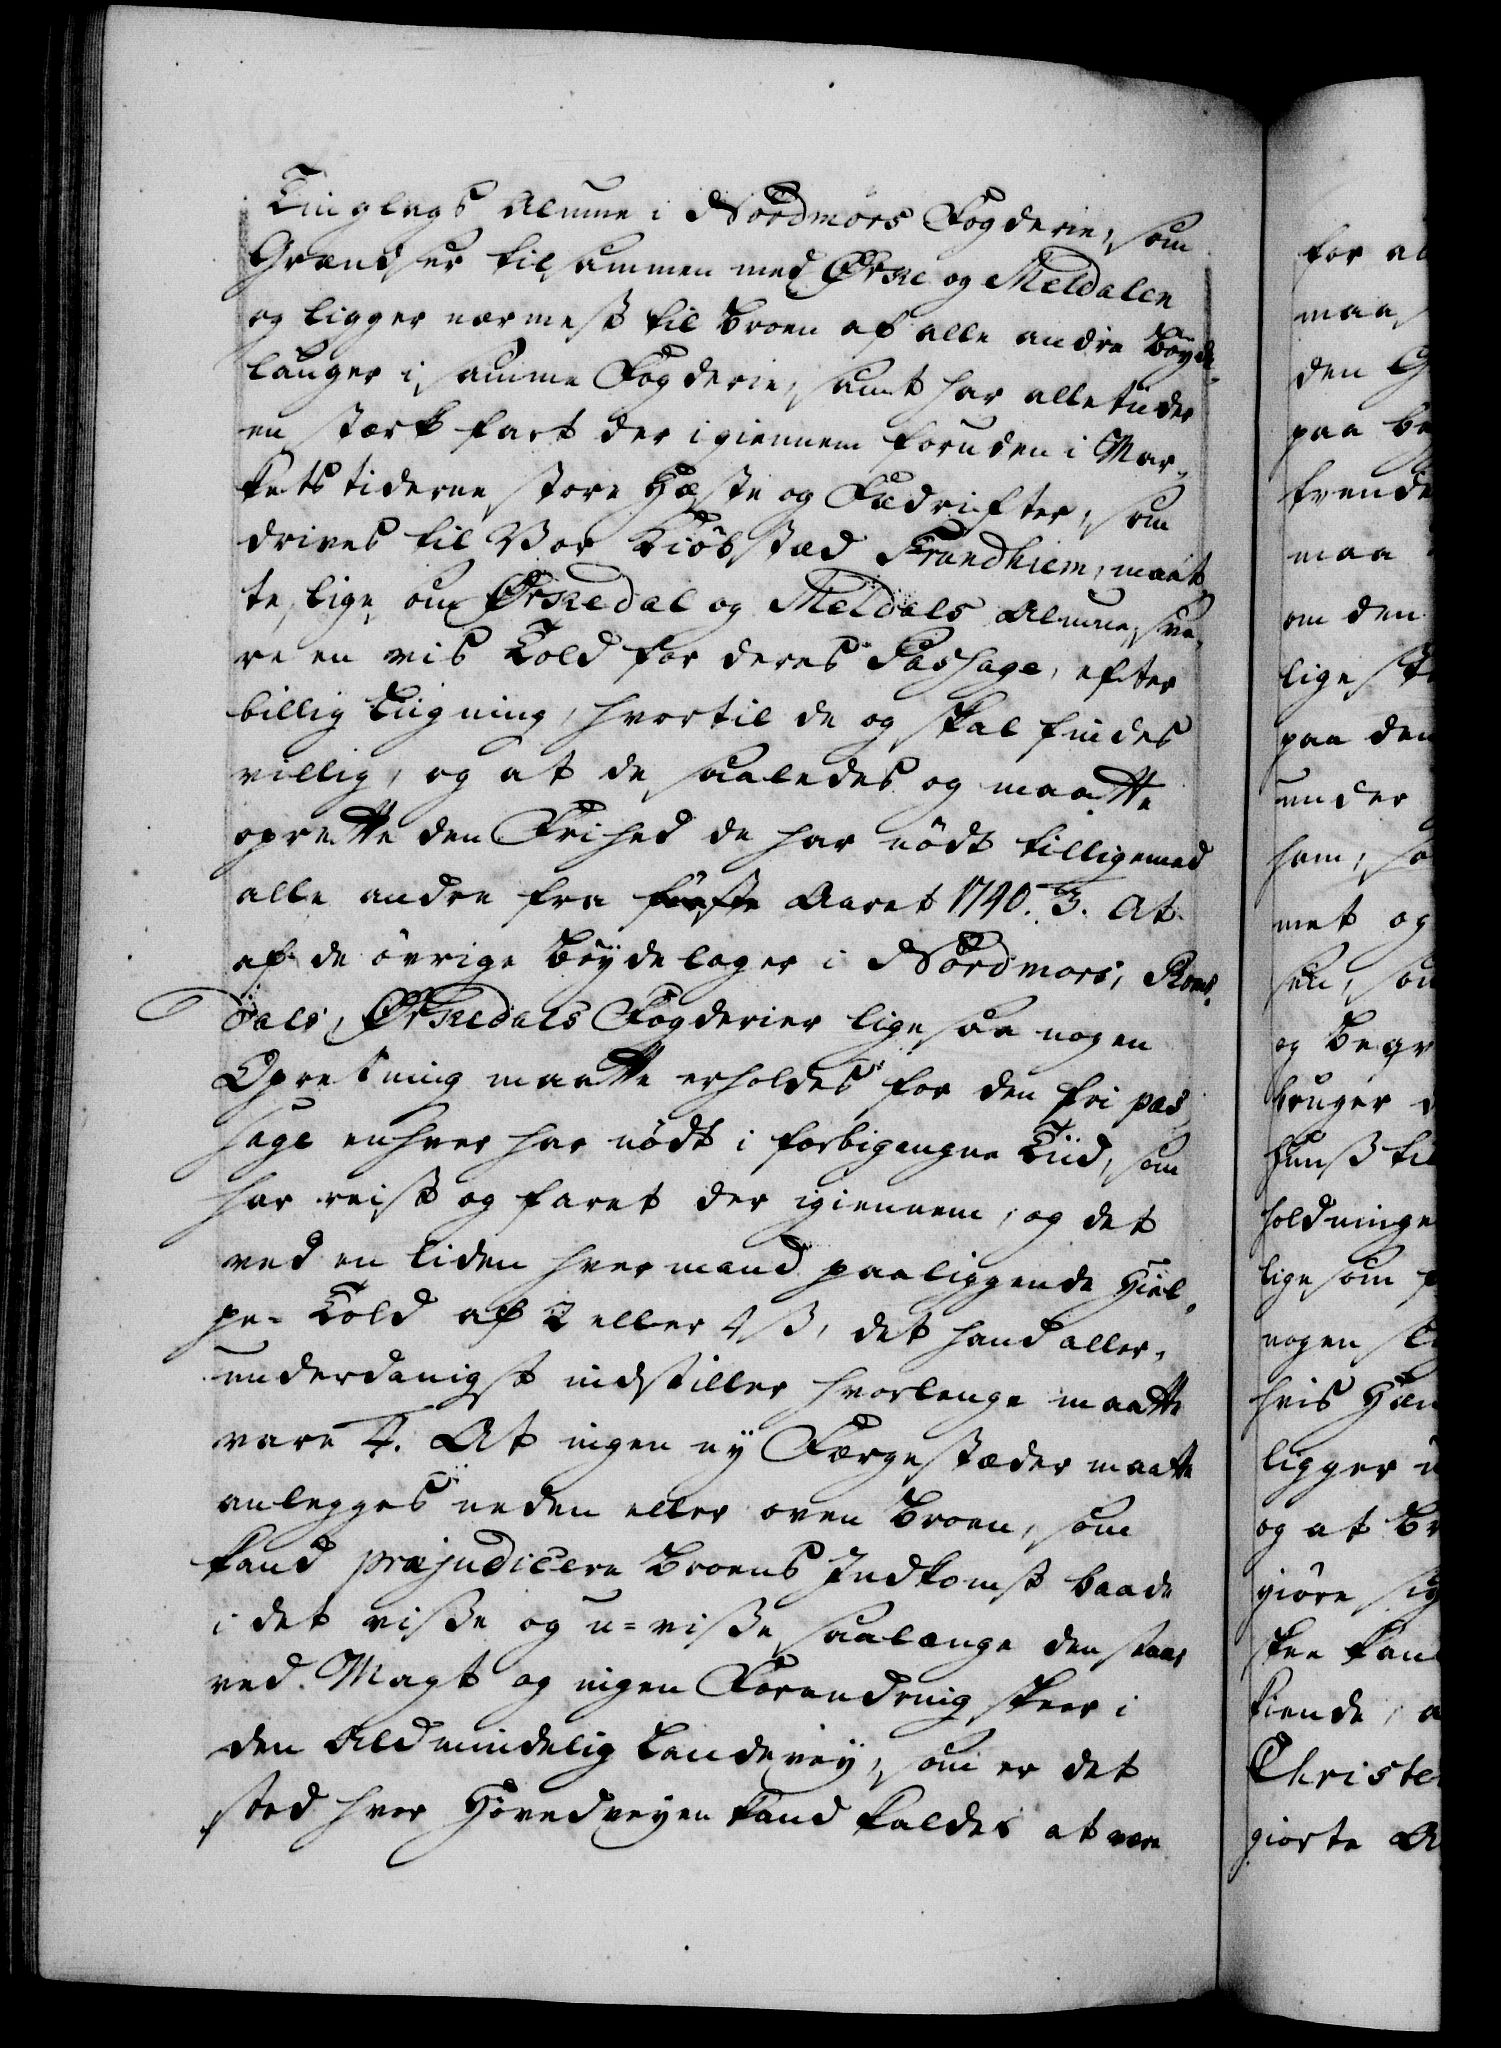 Tinglags Almue i Nordmörs Fogderie, som
Grændser tilsammen med Örke og Meldalen
og ligger nærmest til Broen af alle andre Böyde¬
lauger i samme Fogderie, samt har alletiider
en stærk fart der igiennem foruden i Mar¬
kets tiderne store Hæste og Fædrifter, som
drives til Vor Kiöbstæd Trundhiem, maat¬
te, lige om Örkedal og Meldals Almue, sva¬
re en vis Told for deres Passage, efter
billig Ligning, hvortil de og skal findes
villig, og at de saaledes og maatte
oprette den Friihed de har nödt tilligemed
alle andre fra förste Aaret 1740. 3. At
af de övrige Böydelager i Nordmörs, Roms¬
dals, Örkedals Fogderier ligesaa nogen
Opretning maatte erholdes for den fri pas¬
sage enhver har nödt i forbigangne Tiid, som
har reist og faret der igiennem, og det
ved en liden hver mand paaliggende Hiel¬
pe-Told af 2 eller 4 ß, det hand aller¬
underdanigst indstiller hvorlenge maatte
vare 4. At ingen ny Færgestæder maatte
anlegges neden eller oven Broen, som
kand præjudicere Broens Indkomst baade
i det visse og u-visse, saalænge den staar
ved Magt og ingen Forandring skeer i
den Aldmindelig Landevey, som er det
sted hvor Hovedveyen kand kaldes at være
for al
maa
den G
paa be
frende
maa
om den
lige
paa den
under
ham, so
met og
som
og Begr
bruger
til
holdninge
lige som
nogen
hvis
ligger
og at Br
giöre sig
skee kand
kiende, a
Christe
giorte A